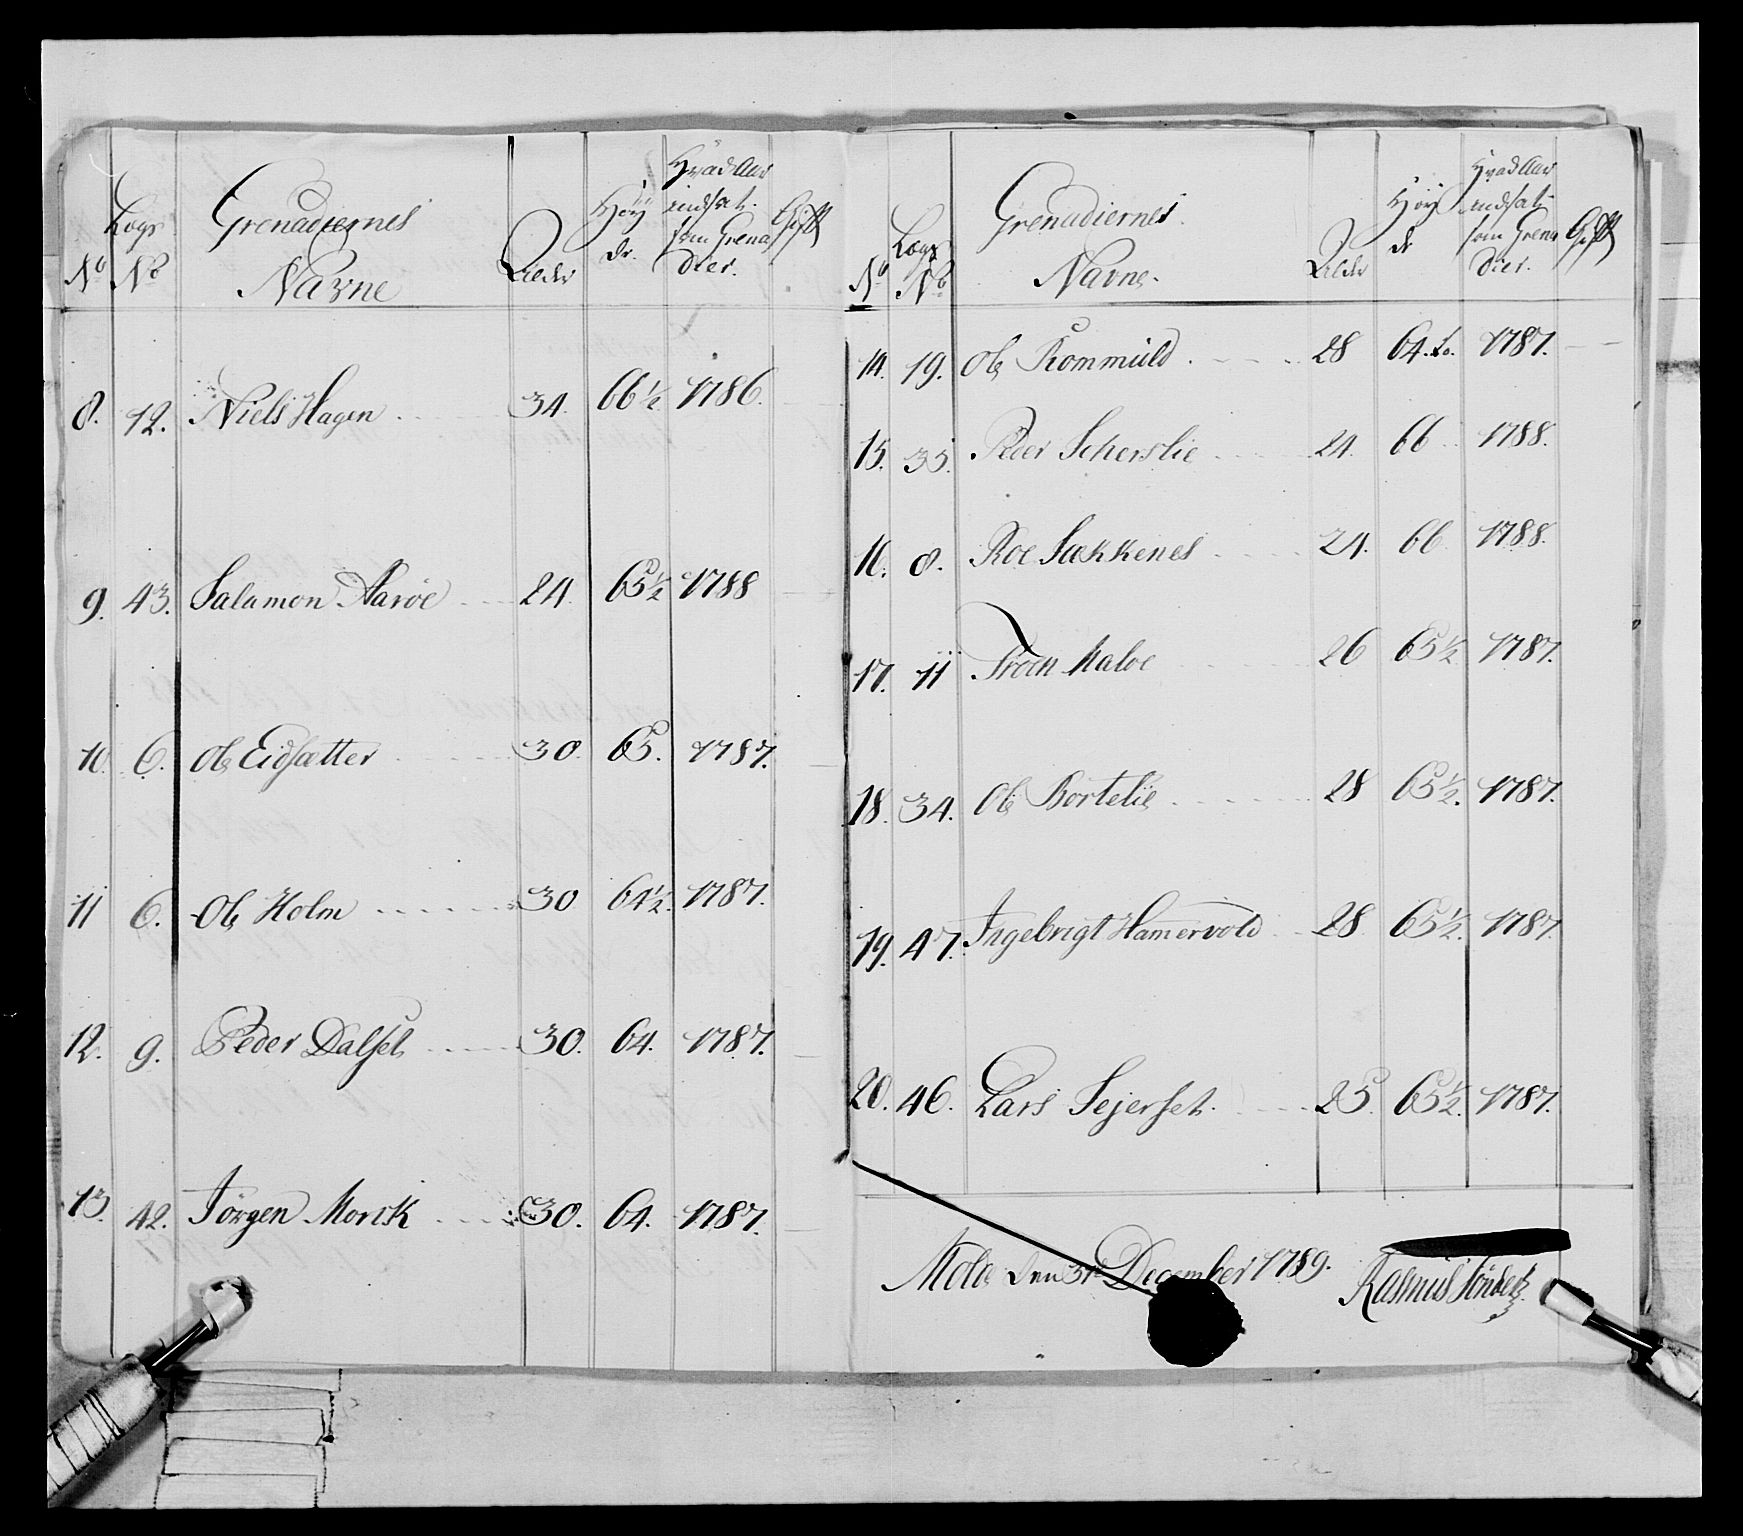 No Legs No Grenadiernes Navne Alder Høy de. Hvad Aar indsat som Grenadier. Gift
8. 12. Niels Hagen 34. 66 1/2 1786.
9. 43. Salamon Aarøe 24. 65 1/2 1788
10. 6. Ole Eidsætter 30. 65. 1787.
11 6. Ole Holm 30 64 1/2. 1787.
12. 9. Peder Dalset 30. 64. 1787.
13. 42. Jörgen Morsk 30. 64. 1787.
No Legs No Grenadiernes Navne. Alder Høy de Hvad Aar indsat som Grenadier. Gift
14. 19. Ole Rommuld 28 64. 1787.
15. 35. Peder Scherslie 24. 66 1788.
16. 8. Roe Sækkenes 24. 66 1788.
17. 11 Troen Maloe 26 65 1/2 1787.
18. 34. Ole Bortelie 28 65 1/2. 1787.
19. 47. Ingebrigt Hamervold 28. 65 1/2. 1787.
20. 46. Lars Sejerset. 25. 65 1/2. 1787.
Molde den 31te December 1789. Rasmus